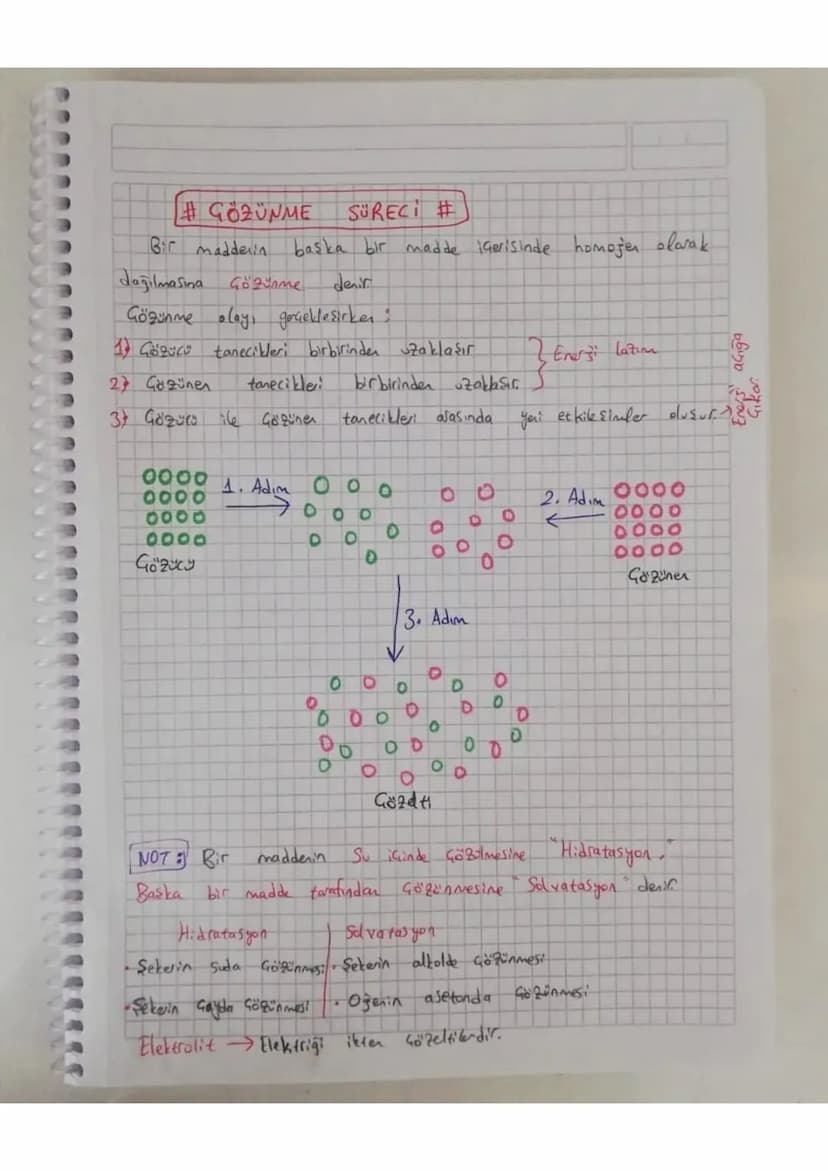 # ÇÖZÜNME SÜRECİ #
Bir maddenin başka bir madde içerisinde homojen olarak
dağılmasına çözünme denir.
Çözünme olayı gerçekleşirken :
1) Çözücü tanecikleri birbirinden uzaklaşır
2) Çözünen tanecikleri birbirinden uzaklaşır.
} Enerji lazım
3) Çözücü ile çözünen tanecikleri arasında yeni etkileşimler oluşur. → Enerji açığa çıkar.
1. Adım
2. Adım
Çözücü
Çözünen
3. Adım
Çözelti
NOT: Bir maddenin su içinde çözülmesine "Hidratasyon,"
Başka bir madde tarafından çözünmesine "Solvatasyon" denir.
Hidratasyon
Solvatasyon
• Şekerin suda çözünmesi
• Şekerin alkolde çözünmesi
• Şekerin çayda çözünmesi
• Ojenin asetonda çözünmesi
Elektrolit → Elektriği ileten çözeltilerdir.